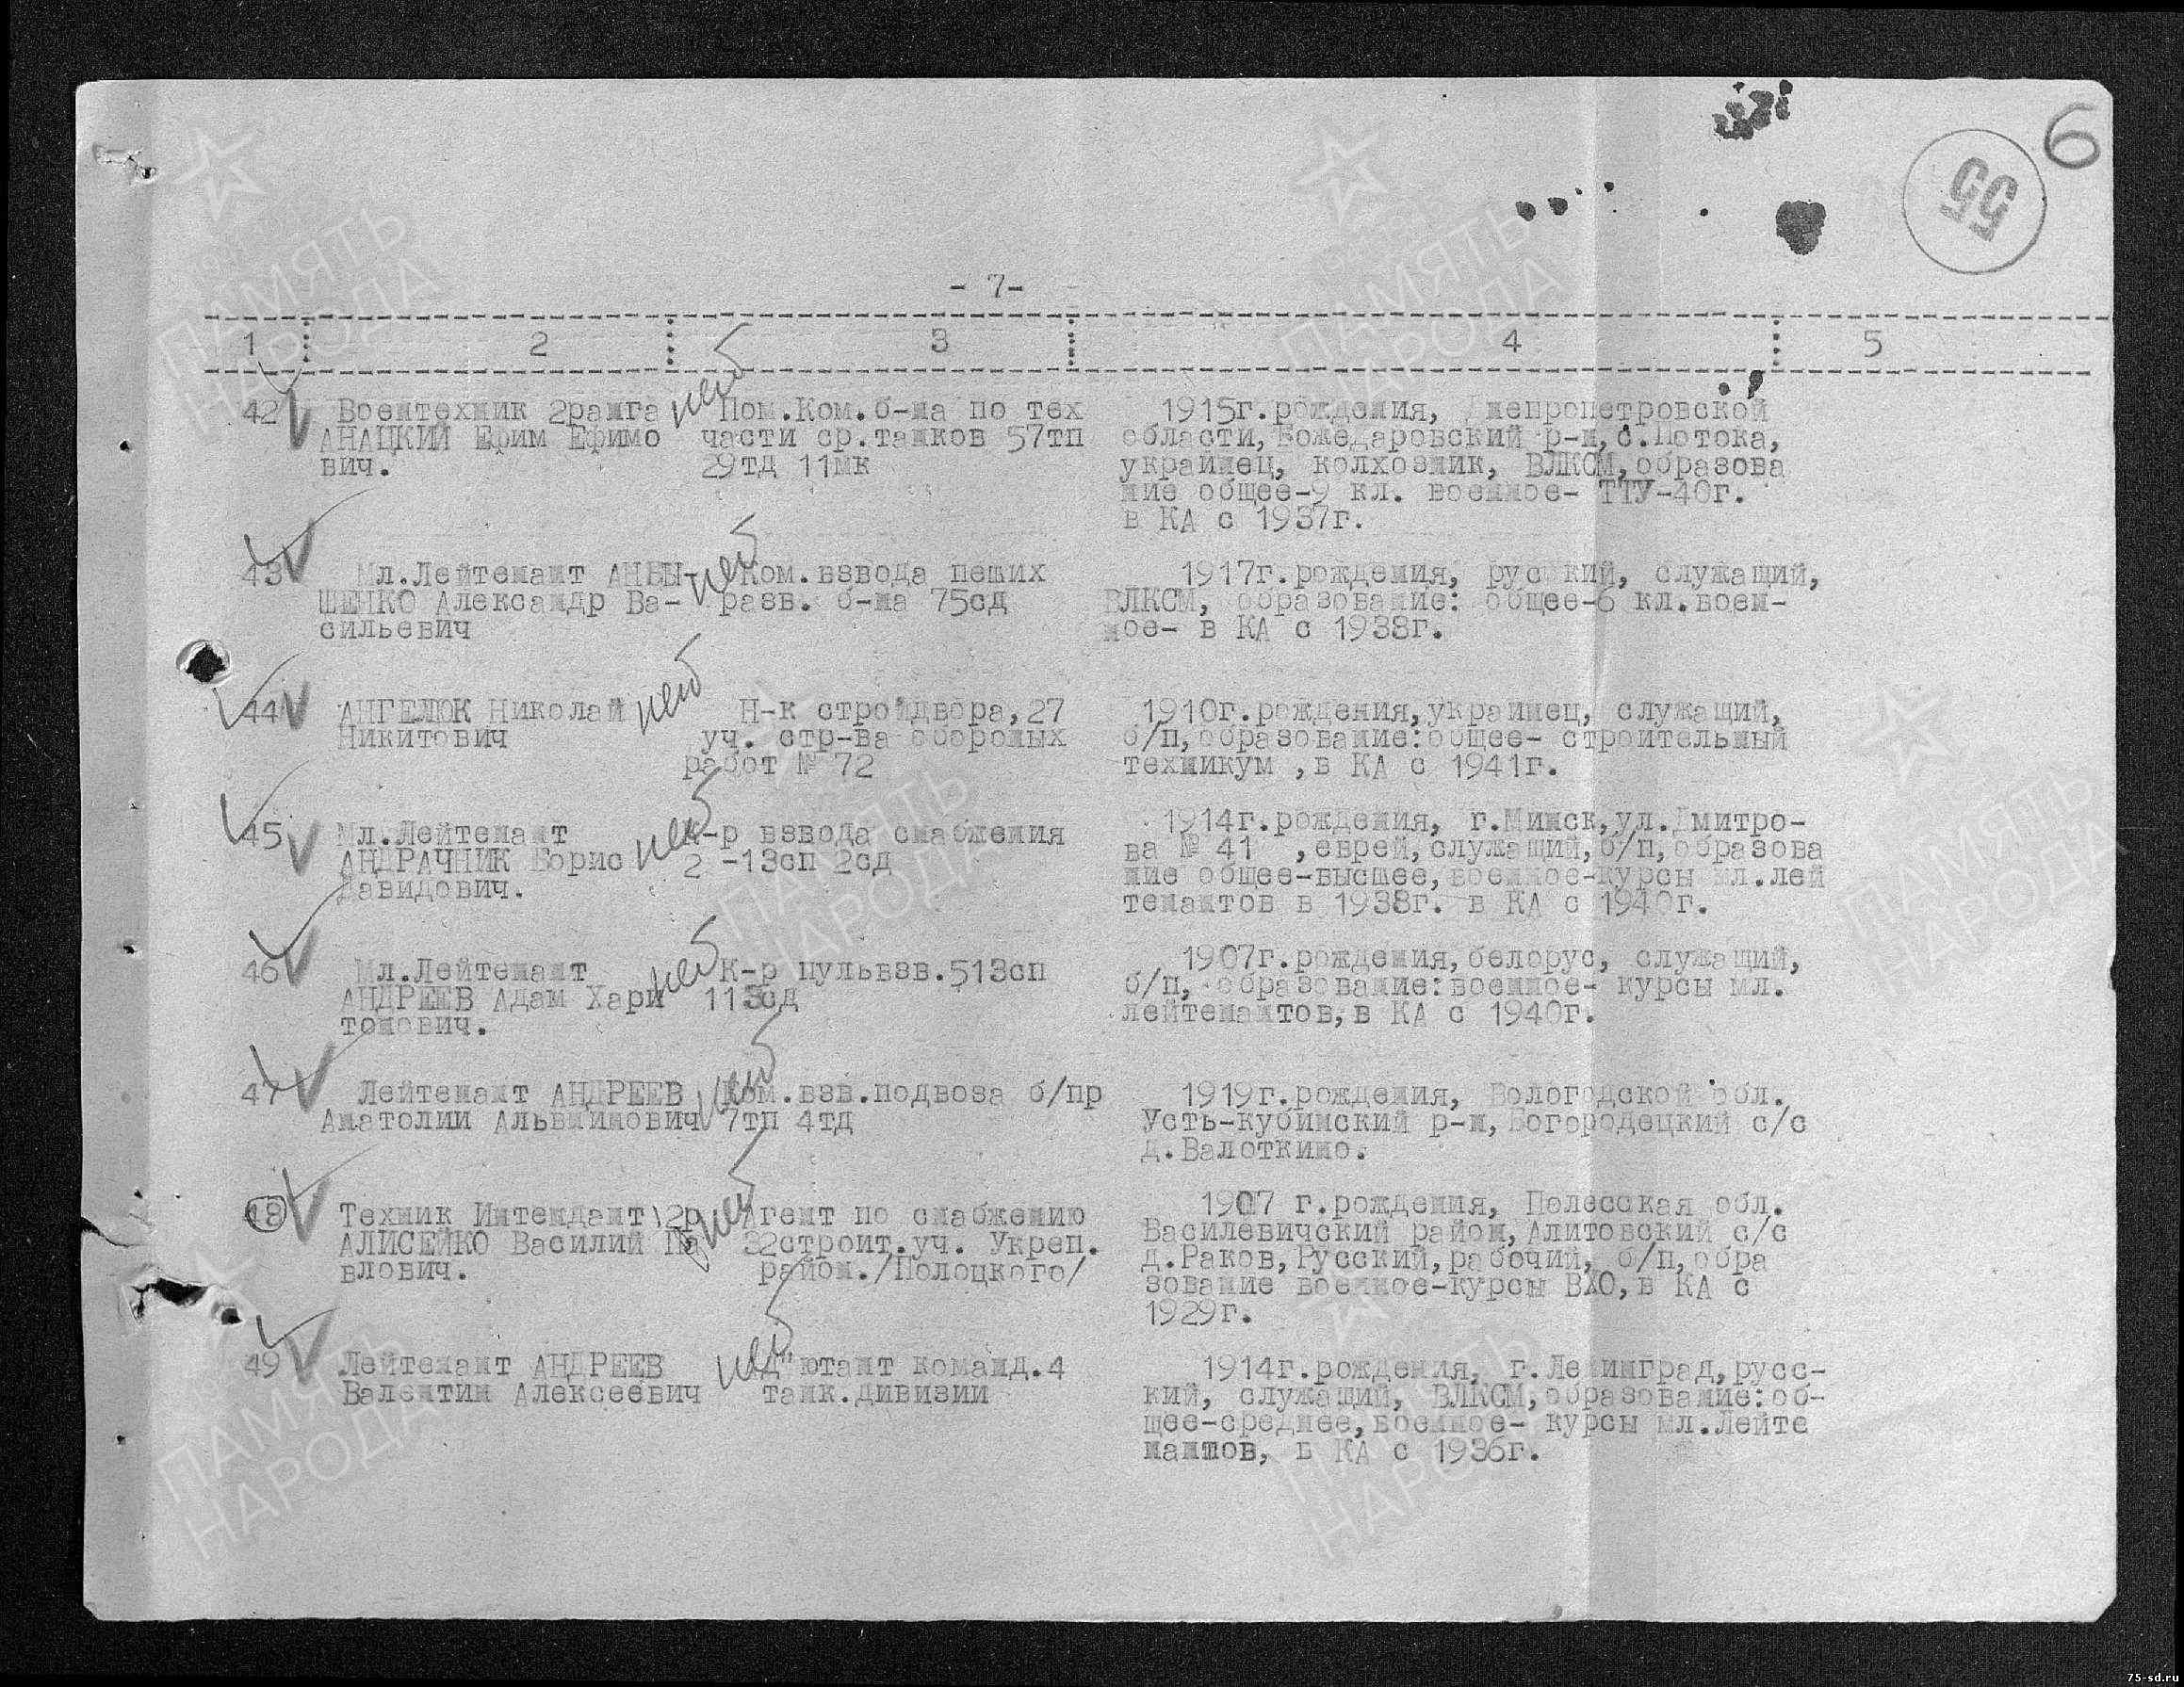 6
55
- 7-
1 2 3 4 5
42 Воентехник 2ранга Пом.Ком.б-на по тех 1915г.рождения, Днепропетровской
АНАЦКИЙ Ефим Ефимо части ср.танков 57тп области, Божедаровский р-н, с.Потока,
вич. 29тд 11мк украинец, колхозник, ВЛКСМ, образова
ние общее-9 кл. военное- ТТУ-40г.
в КА с 1937г.
43 Мл.Лейтенант Ком.взвода пеших 1917г.рождения, русский, служащий,
ШЕНКО Александр Ва- разв. б-на 75сд ВЛКСМ, образование: общее-6 кл.воен-
сильевич ное- в КА с 1938г.
44 АНГЕЛЮК Николай Н-к стройдвора,27 1910г.рождения,украинец, служащий,
Никитович уч. стр-ва обороных б/п,образование:общее- строительный
работ № 72 техникум ,в КА с 1941г.
45 Мл.Лейтенант К-р взвода снабжения 1914г.рождения, г.Минск,ул.Дмитро-
АНДРАЧНИК Борис 2 -13сп 2сд ва № 41 ,еврей,служащий,б/п,образова
Давидович. ние общее-высшее,военное-курсы мл.лей
тенантов в 1938г. в КА с 1940г.
46 Мл.Лейтенант К-р пульвзв.513сп 1907г.рождения,белорус, служащий,
АНДРЕЕВ Адам Хари 113сд б/п, образование:военное- курсы мл.
тонович. лейтенантов,в КА с 1940г.
47 Лейтенант АНДРЕЕВ Ком.взв.подвоза б/пр 1919г.рождения, Вологодской обл.
Анатолии Альвиинович 7тп 4тд Усть-кубинский р-н,Богородецкий с/с
д.Валоткино.
48 Техник Интендант 2р Агент по снабжению 1907 г.рождения, Полесская обл.
АЛИСЕЙКО Василий Па 32строит.уч. Укреп. Василевичский район,Алитовский с/с
влович. район./Полоцкого/ д.Раков,Русский,рабочий, б/п,обра
зование военное-курсы ВХО,в КА с
1929г.
49 Лейтенант АНДРЕЕВ Ад"ютант команд.4 1914г.рождения, г.Ленинград,русс-
Валентин Алексеевич танк.дивизии кий, служащий, ВЛКСМ,образование:об-
щее-среднее,военное- курсы мл.Лейте
нантов, в КА с 1936г.
ПАМЯТЬ
НАРОДА
75-sd.ru